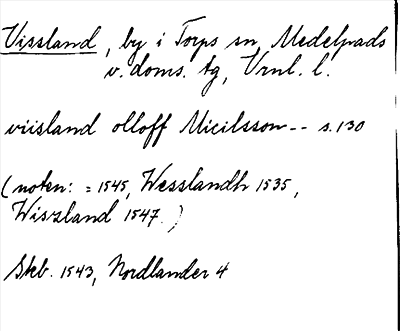 Vissland, by i Torps sn, Medelpads
v. doms. tg, Vrnl. l.
viisland olloff Micilsson -- s. 130
(noten: = 1545, Wesslandh 1535,
Wiszland 1547.)
Skb. 1543, Nordlander 4